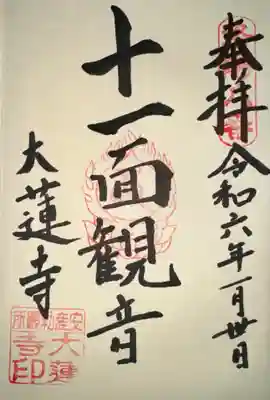 奉拝
令和六年一月丗日
十一面観音
大蓮寺
安産祈願所
大蓮寺印